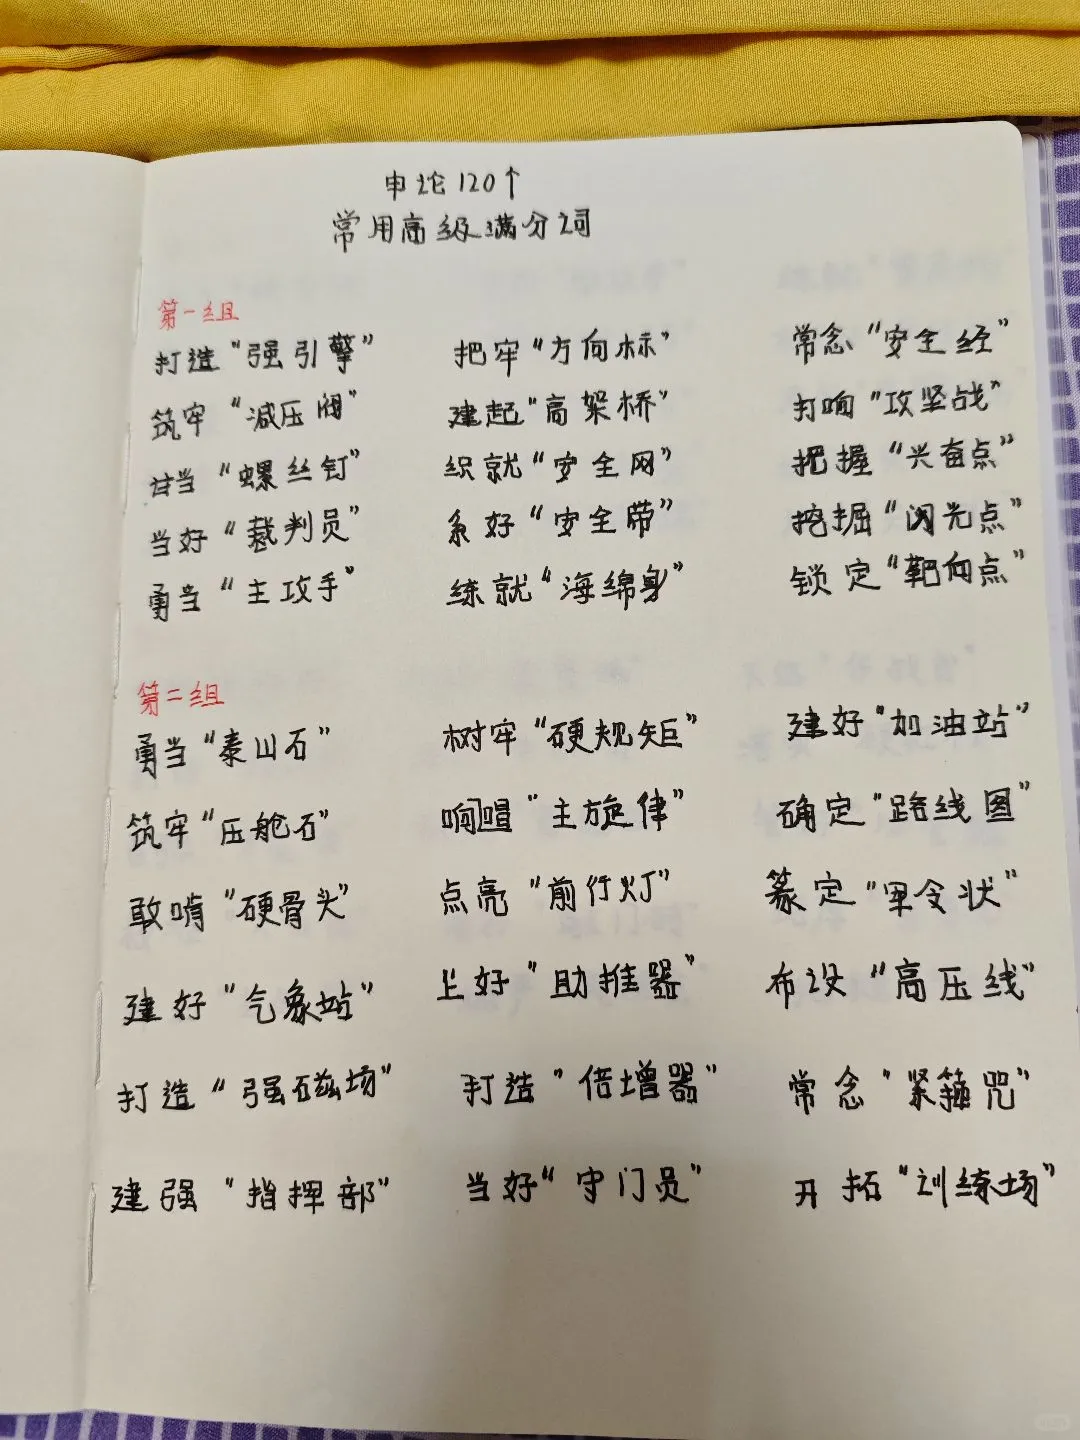 申论120个
常用高级满分词
第一组
打造“强引擎” 把牢“方向标” 常念“安全经”
筑牢“减压阀” 建起“高架桥” 打响“攻坚战”
甘当“螺丝钉” 织就“安全网” 把握“兴奋点”
当好“裁判员” 系好“安全带” 挖掘“闪光点”
勇当“主攻手” 练就“海绵身” 锁定“靶向点”
第二组
勇当“泰山石” 树牢“硬规矩” 建好“加油站”
筑牢“压舱石” 唱响“主旋律” 确定“路线图”
敢啃“硬骨头” 点亮“前行灯” 篆定“军令状”
建好“气象站” 上好“助推器” 布设“高压线”
打造“强磁场” 打造“倍增器” 常念“紧箍咒”
建强“指挥部” 当好“守门员” 开拓“训练场”